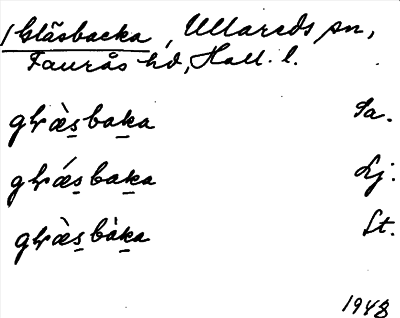 /Gläsbacka, Ullareds sn,
Faurås hd, Hall. l.
glræ̀s̲bak̲a Sa.
glrǽs̲bak̲a Lj.
glræ̀s̲bàk̲a St.
1948